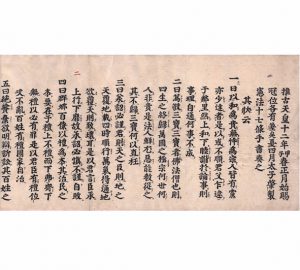 推古天皇十二年甲子春正月始賜
冠位各有差是夏四月太子肇製
憲法十七條手書奏之
其狀云
一曰以和為貴無忤為宗人皆有黨
亦少達者是以或不順君父乍違
于鄰里然上和下睦諧於論事則
事理自通何事不成
二曰篤敬三寶三寶者佛法僧也則
四生之終歸萬國之極宗何世何
人非貴是法人鮮尤惡能教從之
其不歸三寶何以直枉
三曰承詔必謹君則天之臣則地之
天覆地載四時順行萬氣得通地
欲覆天則致壞耳是以君言臣承
上行下靡故承詔必慎不謹自敗
四曰群卿百僚以禮為本其治民之
本要在乎禮上不禮而下非齊下
無禮以必有罪是以君臣有禮位
次不亂百姓有禮國家自治
五曰絕餮棄欲明辨訴訟其百姓之